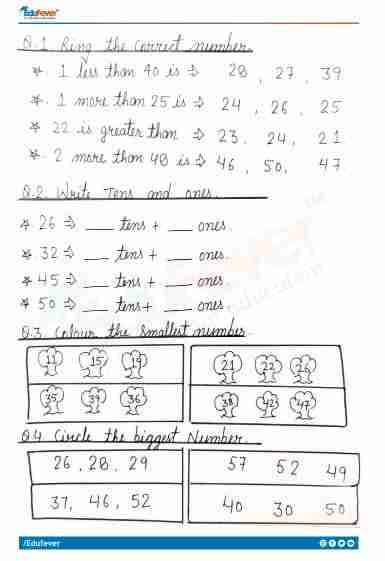 Edufever
Q.1 Ring the correct number.
* 1 less than 40 is ⇒ 28, 27, 39
* 1 more than 25 is ⇒ 24, 26, 25
* 22 is greater than ⇒ 23, 24, 21
* 2 more than 48 is ⇒ 46, 50, 47
Q.2 Write Tens and ones.
* 26 ⇒ __ tens + __ ones.
* 32 ⇒ __ tens + __ ones.
* 45 ⇒ __ tens + __ ones.
* 50 ⇒ __ tens + __ ones.
Q.3. Colour the smallest number.
11 15 19 21 22 26
35 39 36 38 42 47
Q.4. Circle the biggest Number.
26, 28, 29 57 52 49
37, 46, 52 40 30 50
/Edufever